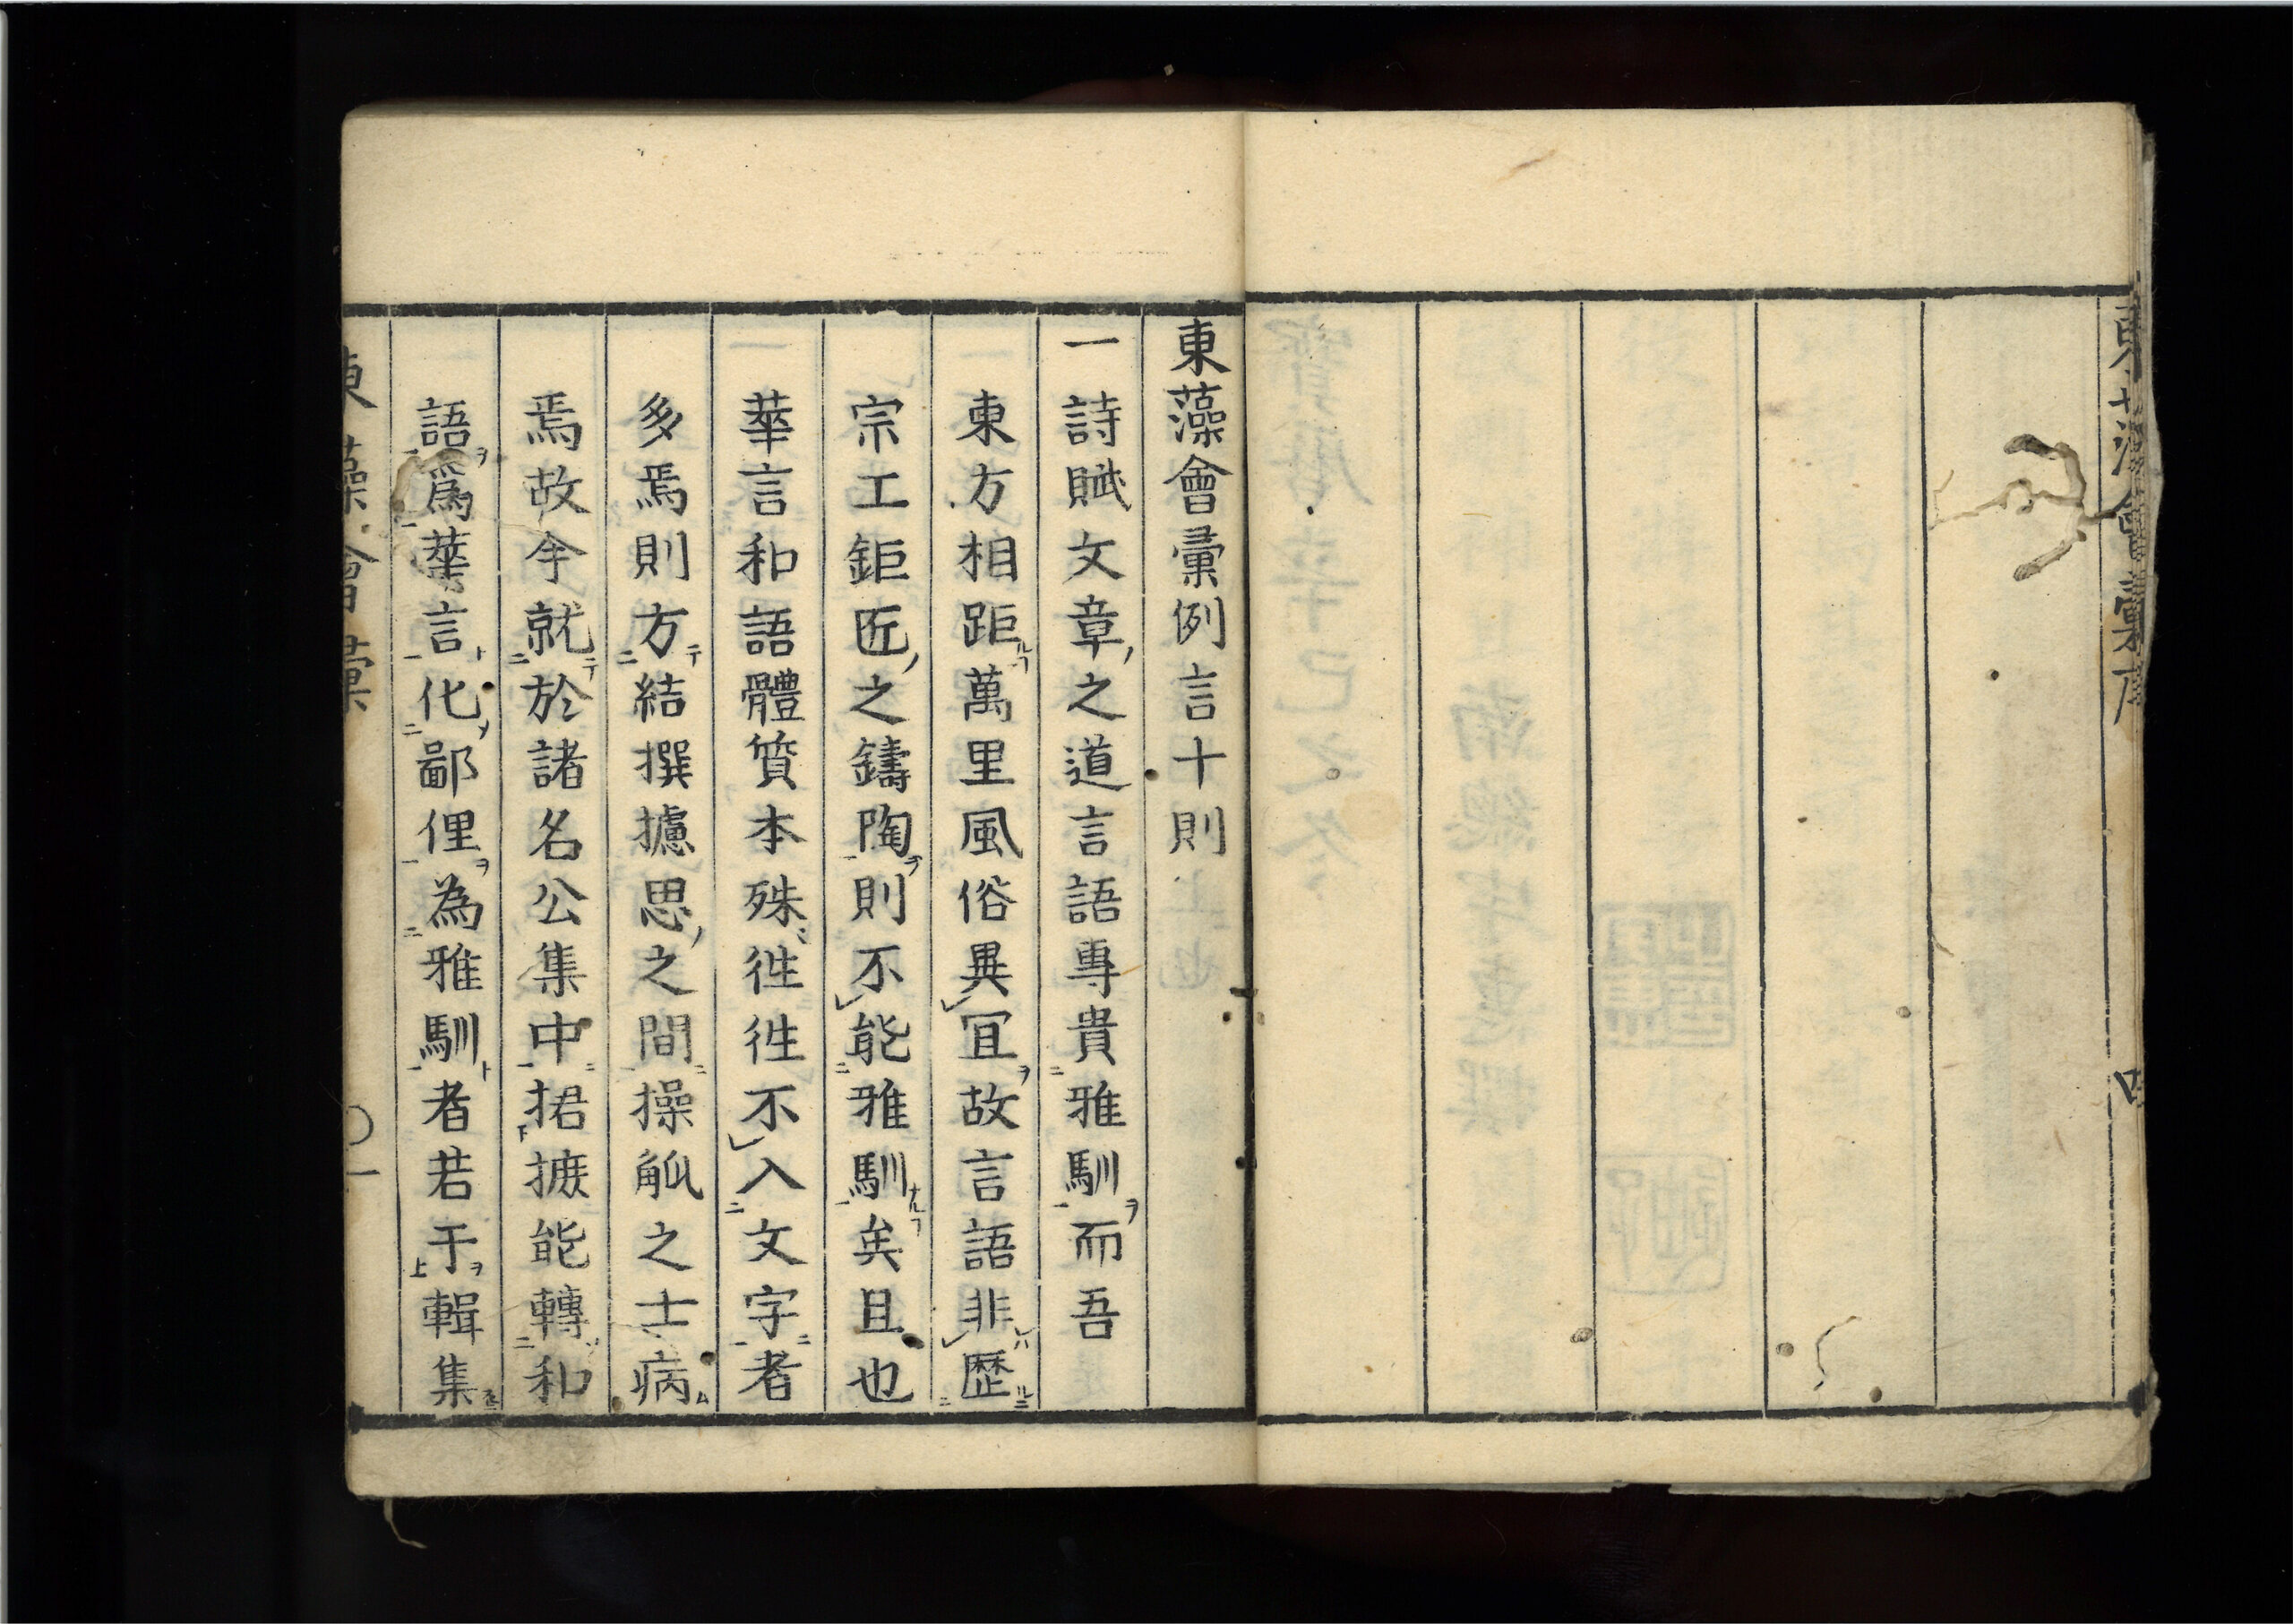 東藻會彙例言十則
一詩賦文章之道言語專貴雅馴而吾
東方相距萬里風俗異冝故言語非歷
宗工鉅匠之鑄陶則不能雅馴矣且也
華言和語體質本殊徃徃不入文字者
多焉則方結撰攄思之間操觚之士病
焉故余就於諸名公集中捃摭能轉和
語爲華言化鄙俚為雅馴者若干輯集
東藻會彙
一